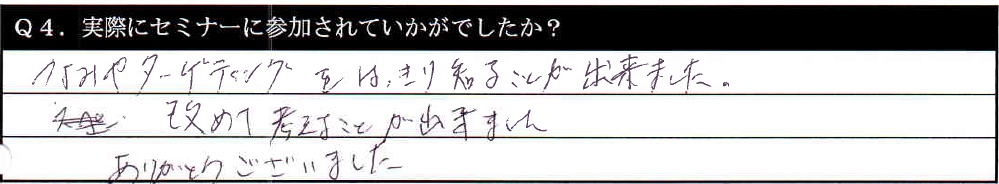 Q4．実際にセミナーに参加されていかがでしたか？
つよみやターゲティングをはっきり知ることが出来ました。
改めて考えることが出来ました
ありがとうございました